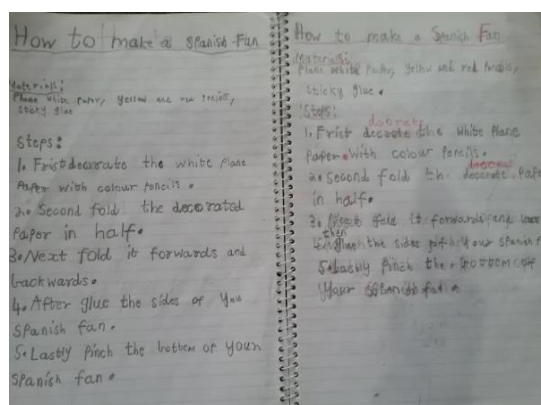 How to make a Spanish Fan
Materials:
Plane white paper, yellow and red pencils,
sticky glue
Steps:
1. Frist decorate the white plane
paper with colour pencils.
2. Second fold the decorated
paper in half.
3. Next fold it forwards and
backwards.
4. After glue the sides of you
spanish fan.
5. Lastly pinch the bottom of your
spanish fan.
How to make a Spanish Fan
Materials:
Plane white paper, yellow and red pencils,
sticky glue.
Steps:
1. Frist decorate the white plane
paper. with colour pencils.
2. Second fold the decorate
in half.
3. Next fold it forwards and
then
4. glue the sides of your spanish
5. Lastly pinch the bottom of
your spanish fan.